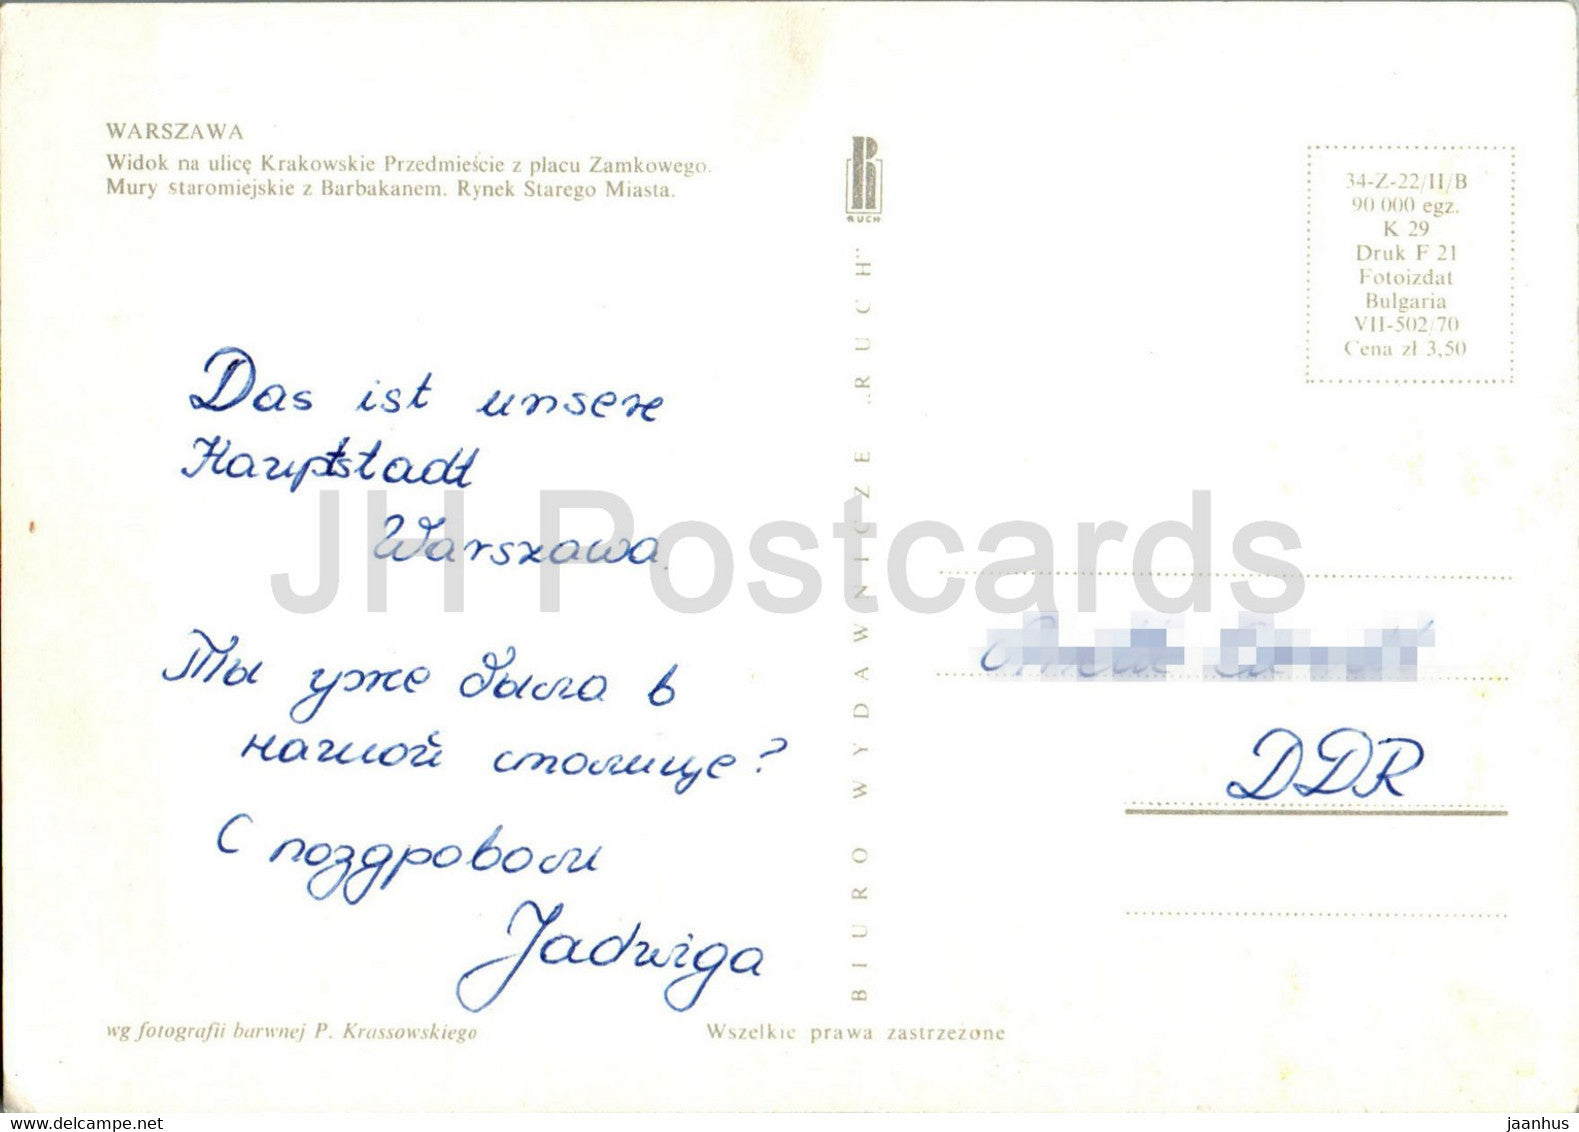 WARSZAWA
Widok na ulicę Krakowskie Przedmieście z placu Zamkowego.
Mury staromiejskie z Barbakanem. Rynek Starego Miasta.
Das ist unsere
Hauptstadt
Warszawa.
Ты уже была в
нашой столице?
С поздровом
Jadwiga
wg fotografii barwnej P. Krassowskiego
Wszelkie prawa zastrzeżone
RUCH
BIURO WYDAWNICZE „RUCH”
34-Z-22/II/B
90 000 egz.
K 29
Druk F 21
Fotoizdat
Bulgaria
VII-502/70
Cena zł 3,50
DDR
JH Postcards
jaanhus